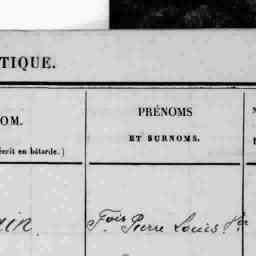 TIQUE.
OM.
écrit en bâtarde.)
PRÉNOMS
ET SURNOMS.
Fois. Pierre Louis.